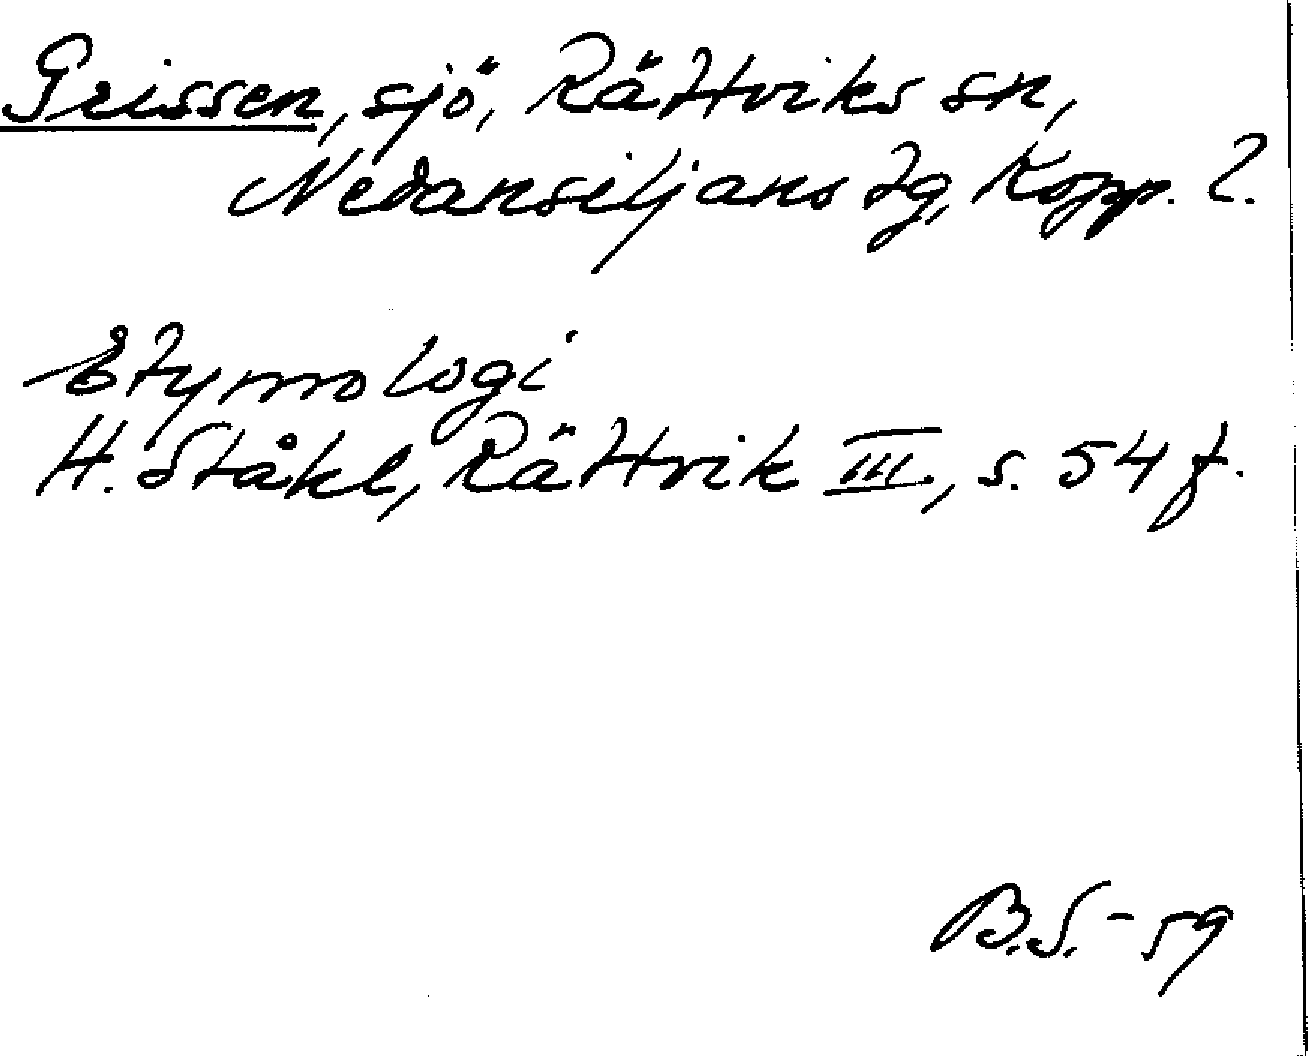 Grissen, sjö, Rättviks sn,
Nedansiljans tg, Kopp. l.
Etymologi
H. Ståhl, Rättvik III, s. 54 f.
B.S. - 59